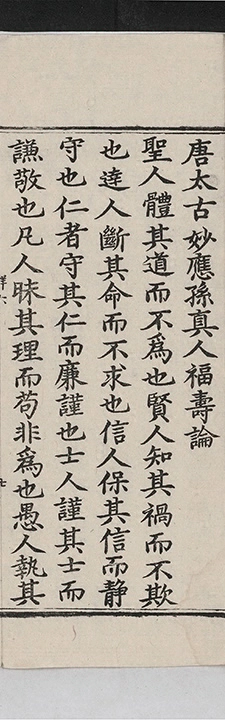 唐太古妙應孫真人福壽論
聖人體其道而不為也賢人知其禍而不欺
也達人斷其命而不求也信人保其信而静
守也仁者守其仁而廉謹也士人謹其士而
謙敬也凡人昧其理而苟非為也愚人執其